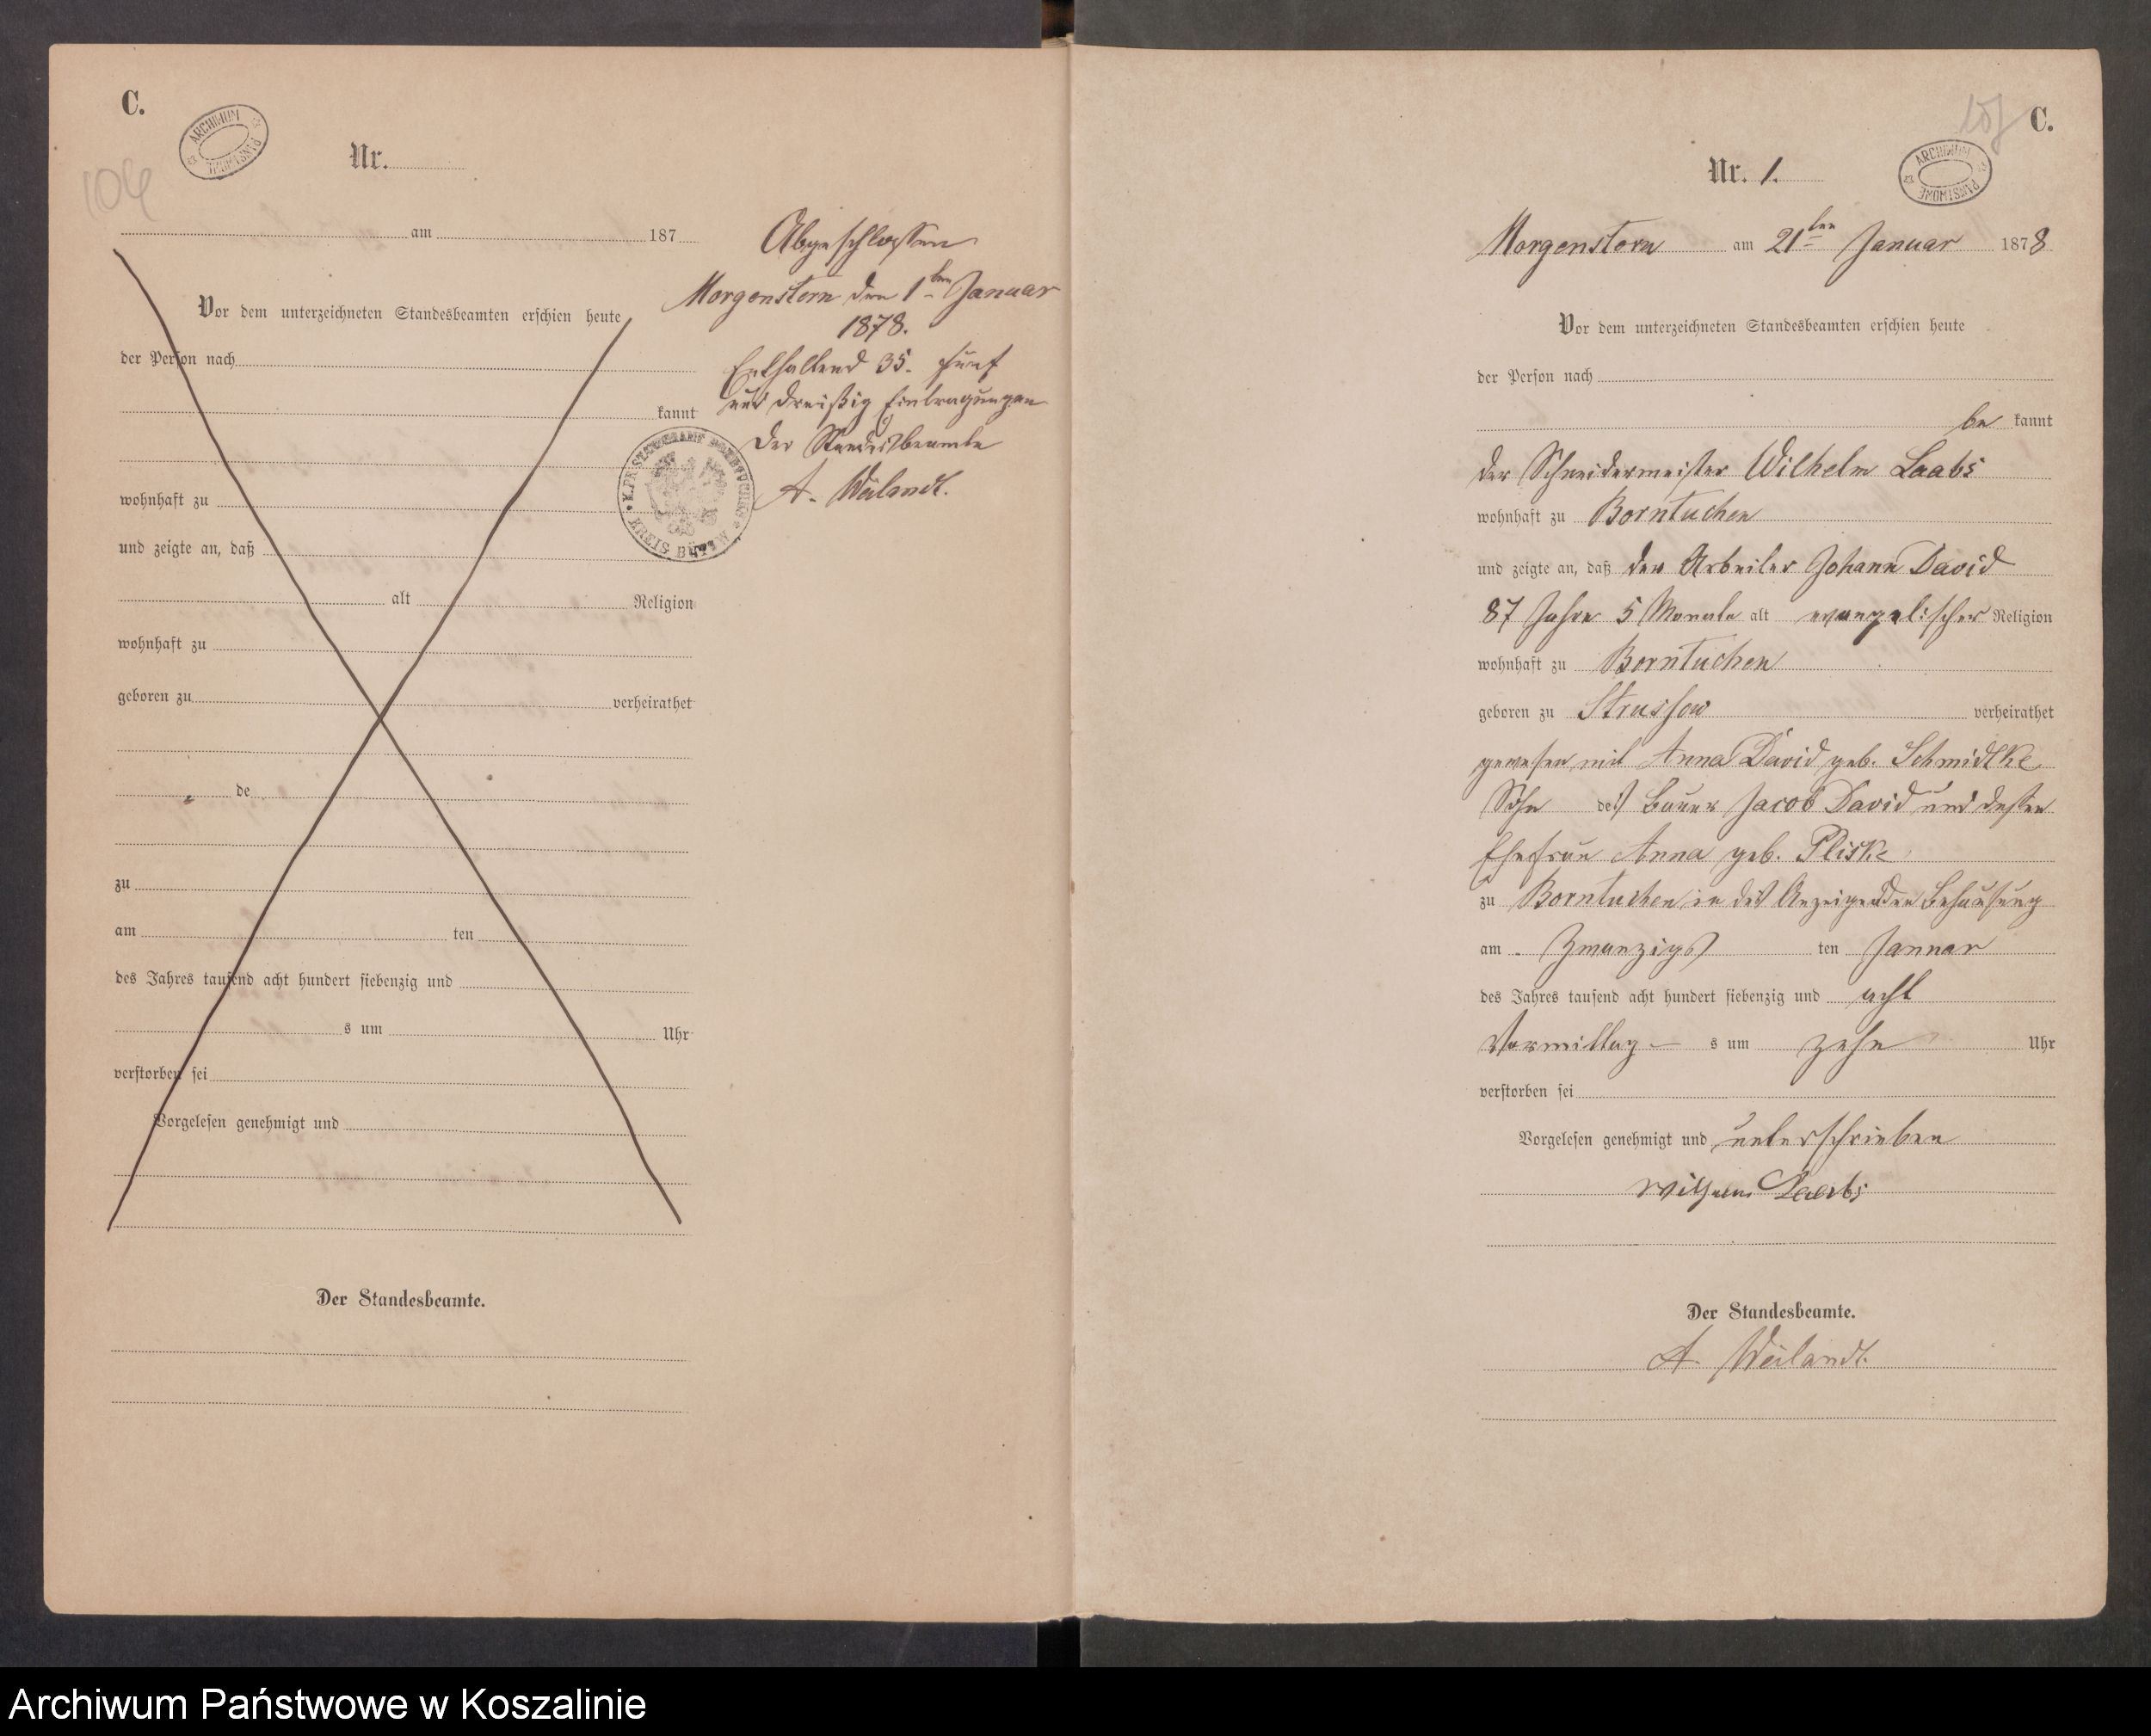 C.
ARCHIWUM PAŃSTWOWE
104
Nr.
am 187
Vor dem unterzeichneten Standesbeamten erschien heute
der Person nach
kannt
wohnhaft zu
und zeigte an, daß
alt Religion
wohnhaft zu
geboren zu verheirathet
de
zu
am ten
des Jahres tausend acht hundert siebenzig und
s um Uhr
verstorben sei
Vorgelesen genehmigt und
Der Standesbeamte.
Abgeschlossen
Morgenstern den 1ten Januar
1878.
Enthaltend 35. fünf
und dreißig Eintragungen
Der Standesbeamte
A. Weilandt.
K. PR. STANDESAMT BORNTUCHEN KREIS BÜTOW
C.
ARCHIWUM PAŃSTWOWE
Nr. 1.
Morgenstern am 21ten Januar 1878
Vor dem unterzeichneten Standesbeamten erschien heute
der Person nach
be kannt
der Schneidermeister Wilhelm Laabs
wohnhaft zu Borntuchen
und zeigte an, daß der Arbeiter Johann David
87 Jahre 5 Monate alt evangelischer Religion
wohnhaft zu Borntuchen
geboren zu Strussow verheirathet
gewesen mit Anna David geb. Schmidtke
Sohn des Bauer Jacob David und dessen
Ehefrau Anna geb. Pliske
zu Borntuchen in des Anzeigenden Behausung
am Zwanzigs ten Januar
des Jahres tausend acht hundert siebenzig und acht
Vormittag s um zehn Uhr
verstorben sei
Vorgelesen genehmigt und unterschrieben
Wilhelm Laabs
Der Standesbeamte.
A. Weilandt.
Archiwum Państwowe w Koszalinie